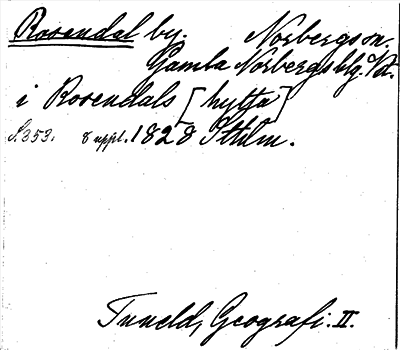 Rosendal by. Norbergs sn.
Gamla Norbergs blg. o/Vt.
i Rosendals [hytta]
S. 353. 8 uppl. 1828 Sthlm.
Tuneld, Geografi. II.